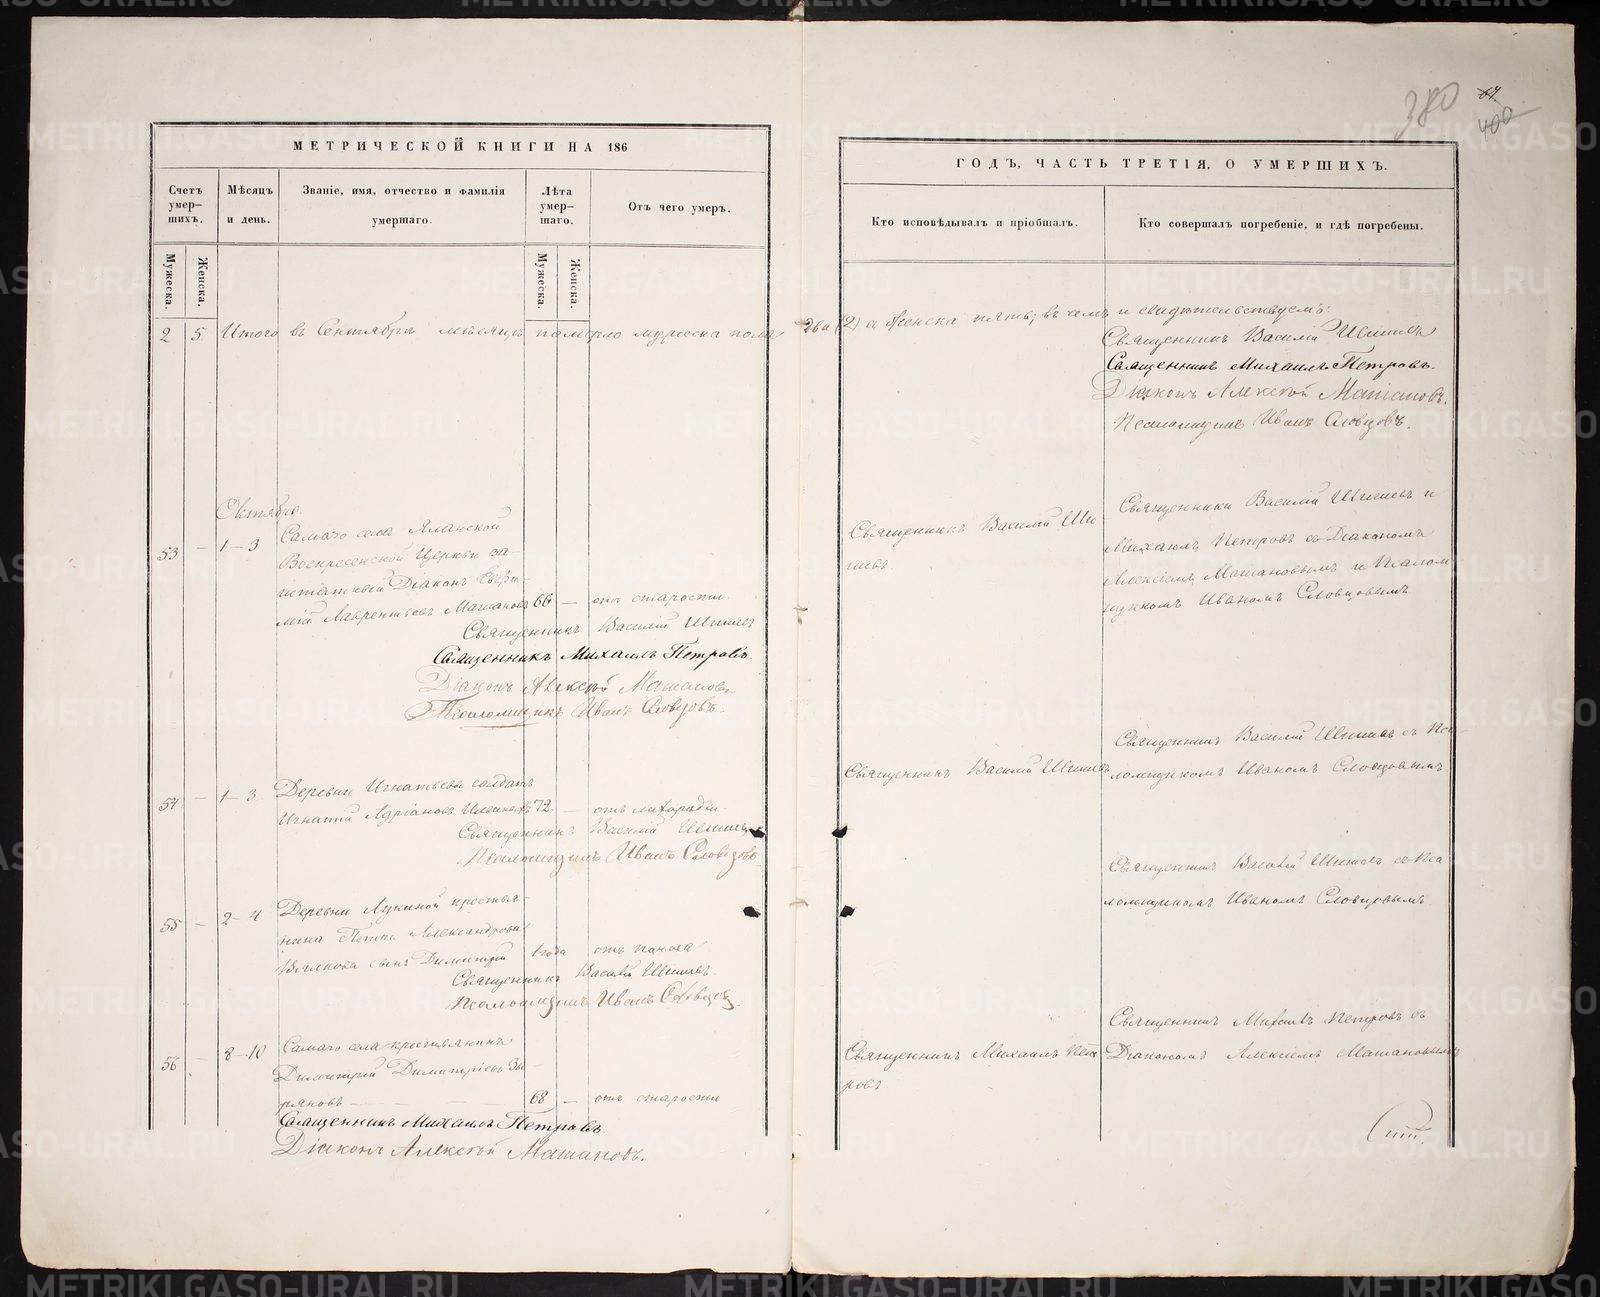 МЕТРИЧЕСКОЙ КНИГИ НА 186
Счетъ умер-шихъ.
Мѣсяцъ и день.
Званіе, имя, отчество и фамилія умершаго.
Лѣта умер-шаго.
Отъ чего умеръ.
Мужеска.
Женска.
Мужеска.
Женска.
2 5 Итого въ Сентябрѣ мѣсяцѣ померло мужеска пола
Октябрь
53 – 1–3 Самаго села Яланской
Воскресенской Церкви за-
штатный Діаконъ Евфи-
мій Лаврентьевъ Машановъ 66 – отъ старости
Священникъ Василій Шишевъ
Священникъ Михаилъ Петровъ.
Діаконъ Алексѣй Машановъ
Псаломщикъ Иванъ Словцовъ.
54 – 1–3 Деревни Игнатьевой солдатъ
Игнатій Адріановъ 72 – отъ лихорадки
Священникъ Василій Шишевъ
Псаломщикъ Иванъ Словцовъ
55 – 2–4 Деревни Лукиной крестья-
нина Петра Александрова
Вялкова сынъ Димитрій 1 года отъ поноса
Священникъ Василій Шишевъ.
Псаломщикъ Иванъ Словцовъ.
56 – 8–10 Самаго села крестьянинъ
Димитрій Димитріевъ Зы-
ряновъ 68 – отъ старости
Священникъ Михаилъ Петровъ.
Діаконъ Алексѣй Машановъ.
380
400
ГОДЪ, ЧАСТЬ ТРЕТІЯ, О УМЕРШИХЪ.
Кто исповѣдывалъ и пріобщалъ.
Кто совершалъ погребеніе, и гдѣ погребены.
два (2) а женска пять; въ чемъ и свидѣтельствуемъ:
Священникъ Василій Шишевъ
Священникъ Михаилъ Петровъ.
Діаконъ Алексѣй Машановъ.
Псаломщикъ Иванъ Словцовъ.
Священникъ Василій Ши-
шевъ
Священники Василій Шишевъ и
Михаилъ Петровъ съ Діакономъ
Алексіемъ Машановымъ и Псалом
щикомъ Иваномъ Словцовымъ
Священникъ Василій Шишевъ
Священникъ Василій Шишевъ съ Пса-
ломщикомъ Иваномъ Словцовымъ
Священникъ Василій Шишевъ съ Пса
ломщикомъ Иваномъ Словцовымъ
Священникъ Михаилъ Пет-
ровъ
Священникъ Михаилъ Петровъ съ
Діакономъ Алексіемъ Машановымъ
METRIKI.GASO-URAL.RU